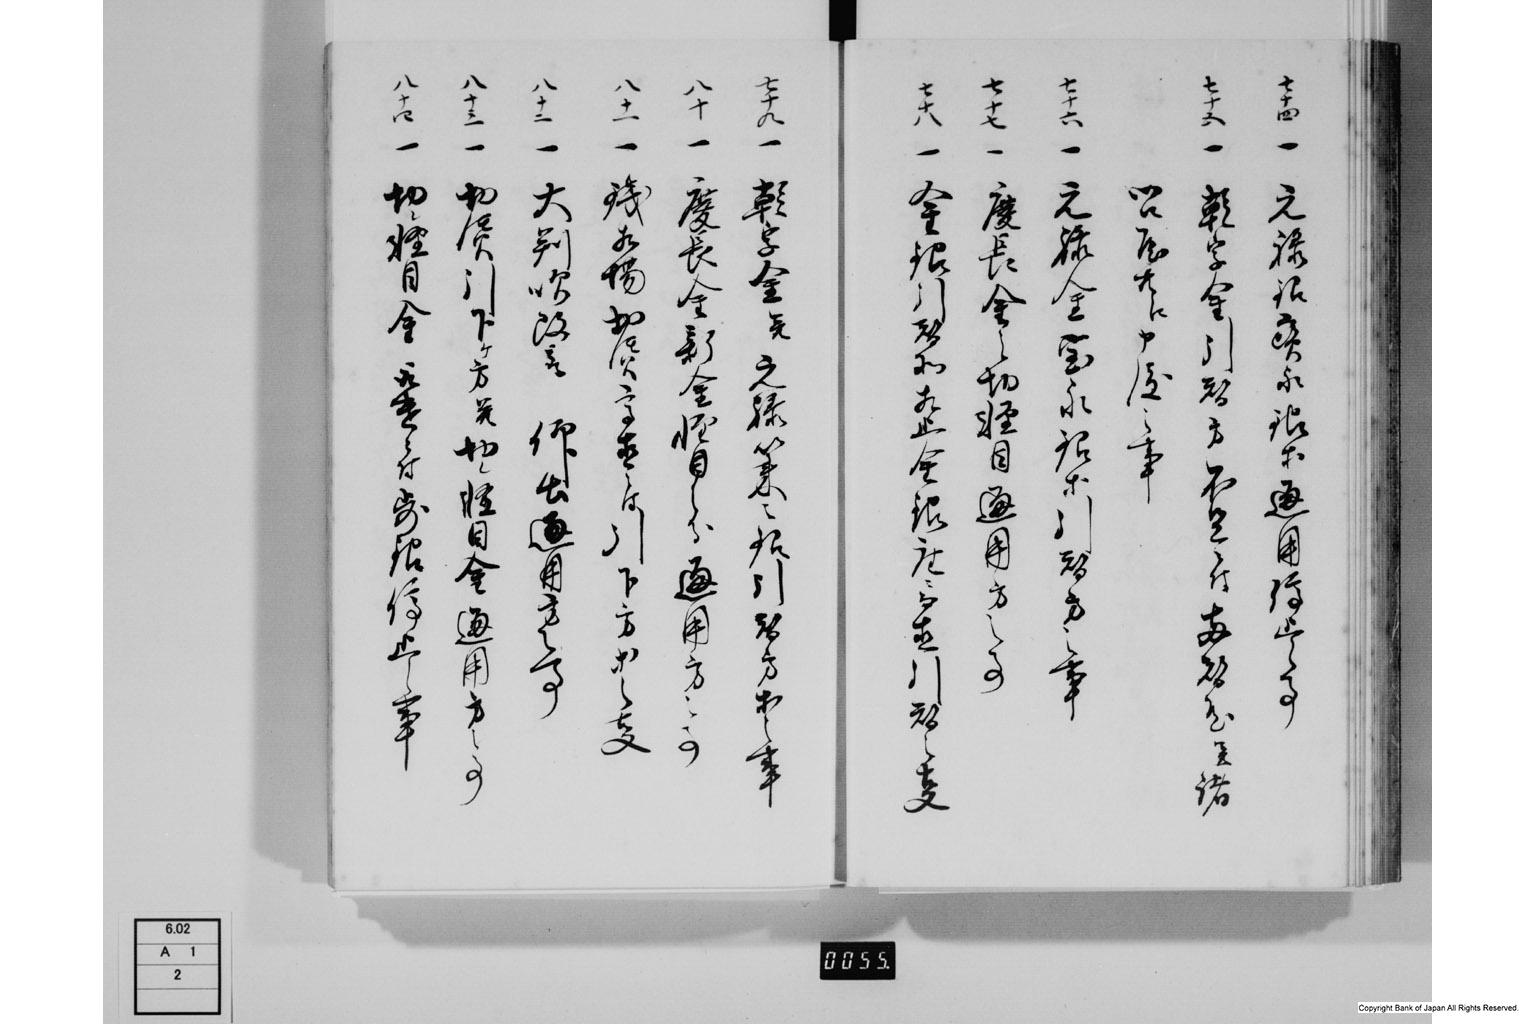 七十四 一 元禄銀宝永銀等通用停止之事
七十五 一 乾字金引替方不足ニ付両替屋其諸
問屋共江申渡之事
七十六 一 元禄金宝永銀等引替方之事
七十七 一 慶長金之切軽目通用方之事
七十八 一 金銀引替所相止金銀座ニ而直引替之事
七十九 一 乾字金并元禄宝永之銀引替方等之事
八十 一 慶長金新金軽目之分通用方之事
八十一 一 銭相場切賃高直ニ付引下方等之事
八十二 一 大判吹改被 仰出通用方之事
八十三 一 切賃引下ケ方并切レ軽目金通用方之事
八十四 一 切レ軽目金 ニ付歩銀停止之事
6.02
A 1
2
0055.
Copyright Bank of Japan All Rights Reserved.